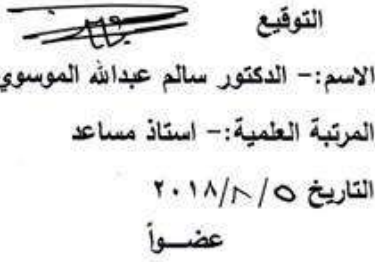 التوقيع
الاسم:- الدكتور سالم عبدالله الموسوي
المرتبة العلمية:- استاذ مساعد
التاريخ ٥/٨/٢٠١٨
عضـــواً